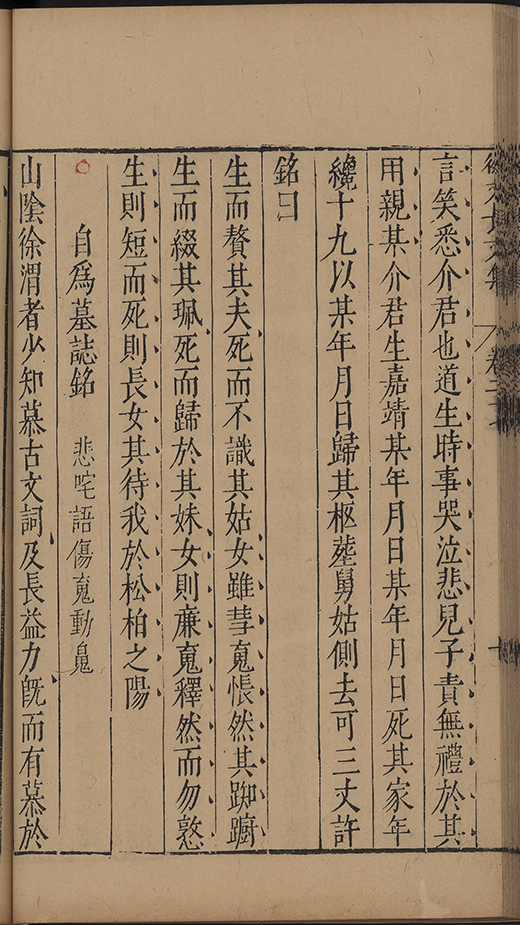 徐文長文集 卷二十
言笑悉介君也道生時事哭泣悲兒子責無禮於其
用親某介君生嘉靖某年月日某年月日死其家年
纔十九以某年月日歸其柩塟舅姑側去可三丈許
銘曰
生而贅其夫死而不識其姑女雖彗䰟悵然其踟躕
生而綴其珮死而歸於其妹女則亷䰟釋然而勿憝
生則短而死則長女其待我於松柏之陽
自爲墓誌銘 悲咤語傷䰟動䰟
山陰徐渭者少知慕古文詞及長益力旣而有慕於